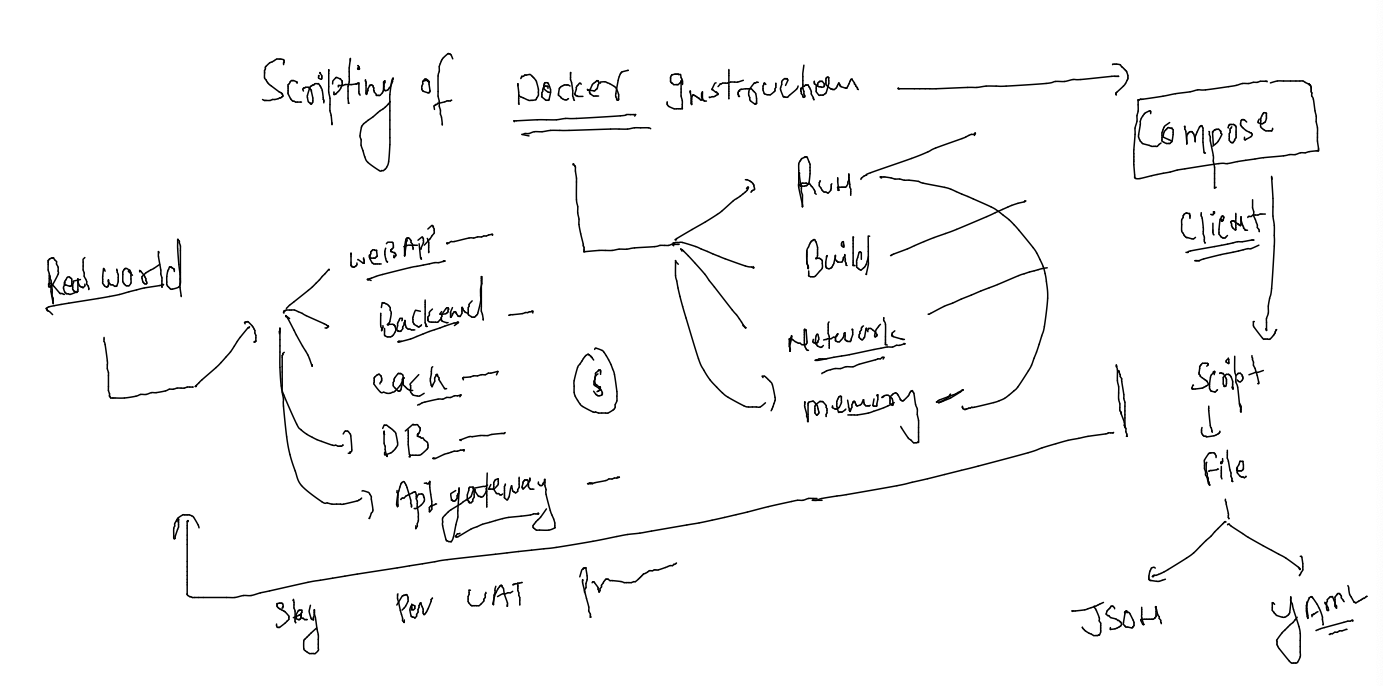 Scripting of Docker Instruction
Compose
Client
Script
File
JSON
YAML
Run
Build
Network
memory
Real world
WEBAPP
Backend
cach
DB
ApI gateway
5
Stg
Dev UAT